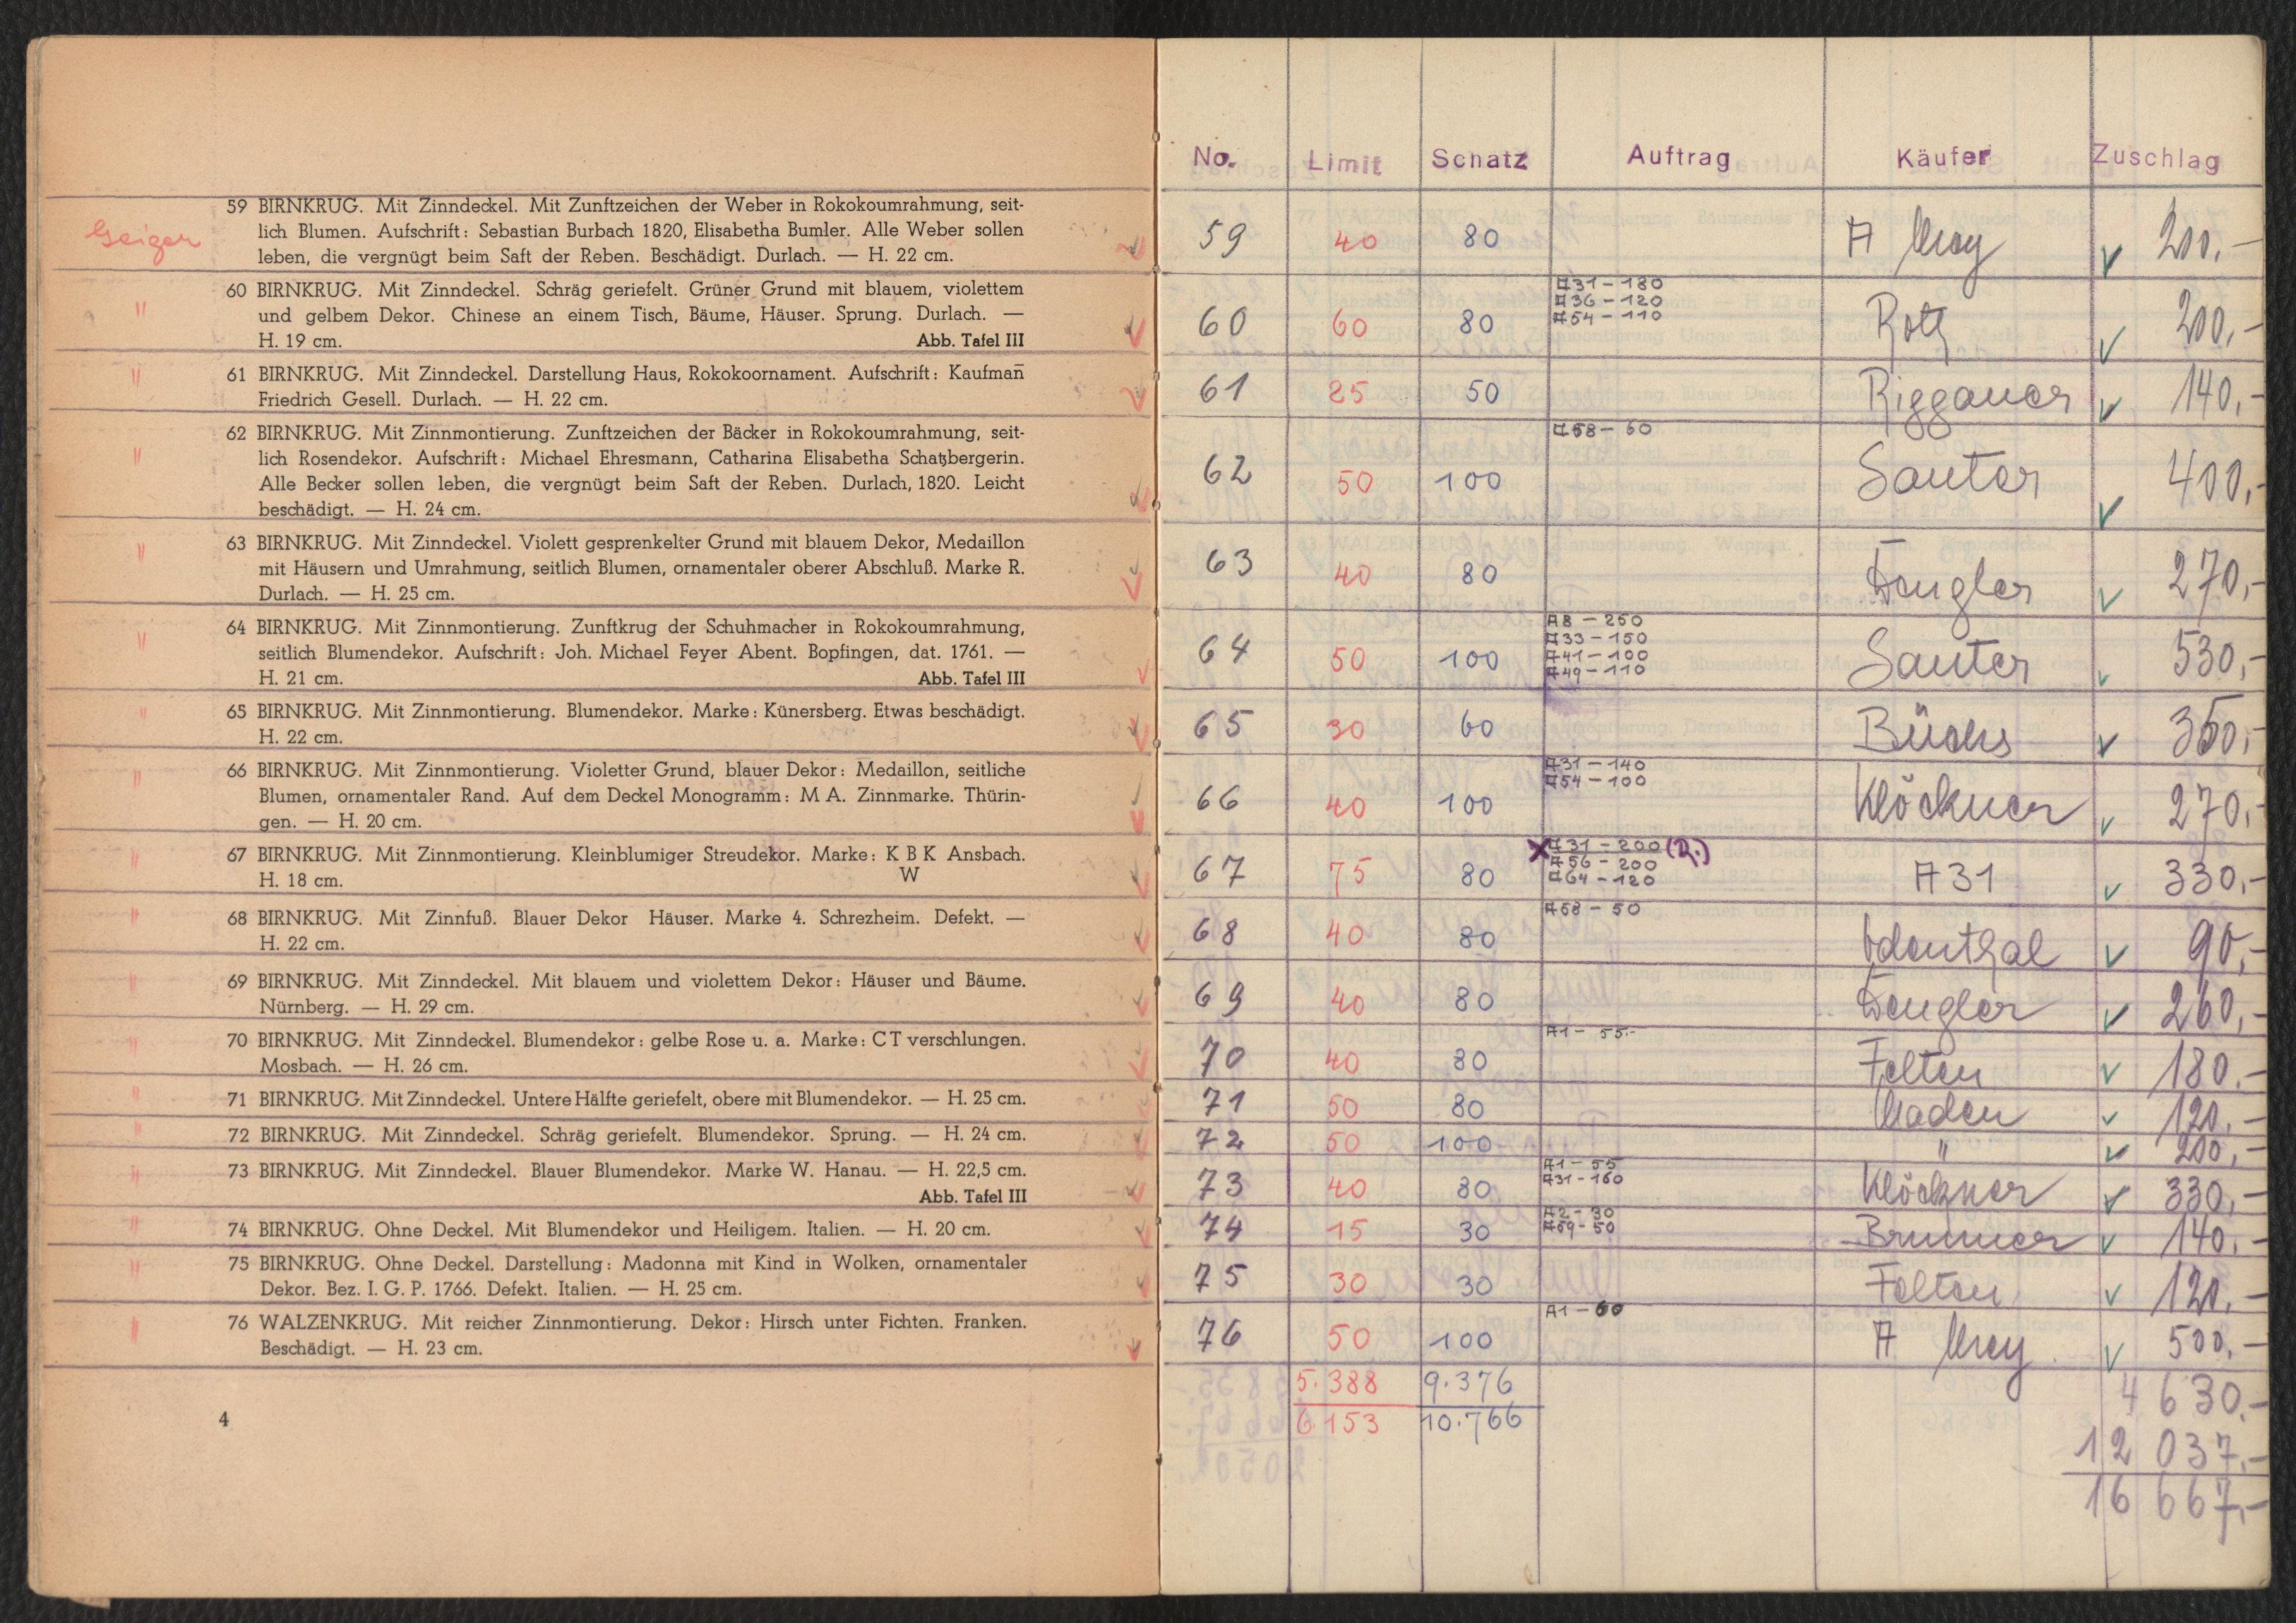 59 BIRNKRUG. Mit Zinndeckel. Mit Zunftzeichen der Weber in Rokokoumrahmung, seit-
Geiger
lich Blumen. Aufschrift: Sebastian Burbach 1820, Elisabetha Bumler. Alle Weber sollen
leben, die vergnügt beim Saft der Reben. Beschädigt. Durlach. — H. 22 cm.
" 60 BIRNKRUG. Mit Zinndeckel. Schräg geriefelt. Grüner Grund mit blauem, violettem
und gelbem Dekor. Chinese an einem Tisch, Bäume, Häuser. Sprung. Durlach. —
H. 19 cm. Abb. Tafel III
" 61 BIRNKRUG. Mit Zinndeckel. Darstellung Haus, Rokokoornament. Aufschrift: Kaufman̄
Friedrich Gesell. Durlach. — H. 22 cm.
" 62 BIRNKRUG. Mit Zinnmontierung. Zunftzeichen der Bäcker in Rokokoumrahmung, seit-
lich Rosendekor. Aufschrift: Michael Ehresmann, Catharina Elisabetha Schatzbergerin.
Alle Becker sollen leben, die vergnügt beim Saft der Reben. Durlach, 1820. Leicht
beschädigt. — H. 24 cm.
" 63 BIRNKRUG. Mit Zinndeckel. Violett gesprenkelter Grund mit blauem Dekor, Medaillon
mit Häusern und Umrahmung, seitlich Blumen, ornamentaler oberer Abschluß. Marke R.
Durlach. — H. 25 cm.
" 64 BIRNKRUG. Mit Zinnmontierung. Zunftkrug der Schuhmacher in Rokokoumrahmung,
seitlich Blumendekor. Aufschrift: Joh. Michael Feyer Abent. Bopfingen, dat. 1761. —
H. 21 cm. Abb. Tafel III
" 65 BIRNKRUG. Mit Zinnmontierung. Blumendekor. Marke: Künersberg. Etwas beschädigt.
H. 22 cm.
" 66 BIRNKRUG. Mit Zinnmontierung. Violetter Grund, blauer Dekor: Medaillon, seitliche
Blumen, ornamentaler Rand. Auf dem Deckel Monogramm: M A. Zinnmarke. Thürin-
gen. — H. 20 cm.
" 67 BIRNKRUG. Mit Zinnmontierung. Kleinblumiger Streudekor. Marke: K B K Ansbach.
H. 18 cm. W
" 68 BIRNKRUG. Mit Zinnfuß. Blauer Dekor Häuser. Marke 4. Schrezheim. Defekt. —
H. 22 cm.
" 69 BIRNKRUG. Mit Zinndeckel. Mit blauem und violettem Dekor: Häuser und Bäume.
Nürnberg. — H. 29 cm.
" 70 BIRNKRUG. Mit Zinndeckel. Blumendekor: gelbe Rose u. a. Marke: C T verschlungen.
Mosbach. — H. 26 cm.
" 71 BIRNKRUG. Mit Zinndeckel. Untere Hälfte geriefelt, obere mit Blumendekor. — H. 25 cm.
" 72 BIRNKRUG. Mit Zinndeckel. Schräg geriefelt. Blumendekor. Sprung. — H. 24 cm.
" 73 BIRNKRUG. Mit Zinndeckel. Blauer Blumendekor. Marke W. Hanau. — H. 22,5 cm.
Abb. Tafel III
" 74 BIRNKRUG. Ohne Deckel. Mit Blumendekor und Heiligem. Italien. — H. 20 cm.
" 75 BIRNKRUG. Ohne Deckel. Darstellung: Madonna mit Kind in Wolken, ornamentaler
Dekor. Bez. I. G. P. 1766. Defekt. Italien. — H. 25 cm.
" 76 WALZENKRUG. Mit reicher Zinnmontierung. Dekor: Hirsch unter Fichten. Franken.
Beschädigt. — H. 23 cm.
4
No. Limit Schatz Auftrag Käufer Zuschlag
59 40 80 A 200,—
A31 – 180
A36 – 120
A54 – 110
60 60 80 Roth 200,—
61 25 50 Riggauer 140,—
A58 – 60
62 50 100 Sauter 400,—
63 40 80 Dengler 270,—
A8 – 250
A33 – 150
A41 – 100
A49 – 110
64 50 100 Sauter 530,—
65 30 60 Büchs 350,—
A31 – 140
A54 – 100
66 40 100 Klöckner 270,—
X A31 – 200 (R.)
A56 – 200
A64 – 120
67 75 80 A31 330,—
A58 – 50
68 40 80 Odenthal 90,—
69 40 80 Dengler 260,—
A1 – 55.–
70 40 80 Felten 180.—
71 50 80 Maden 120.—
72 50 100 " 200,—
A1 – 55
A31 – 160
73 40 80 Klöckner 330,—
A2 – 30
A59 – 50
74 15 30 Brunner 140.—
75 30 30 Felten 120.—
A1 – 60
76 50 100 A 500,—
5.388 9.376 4 630.—
6.153 10.766
12 037,—
16 667,—